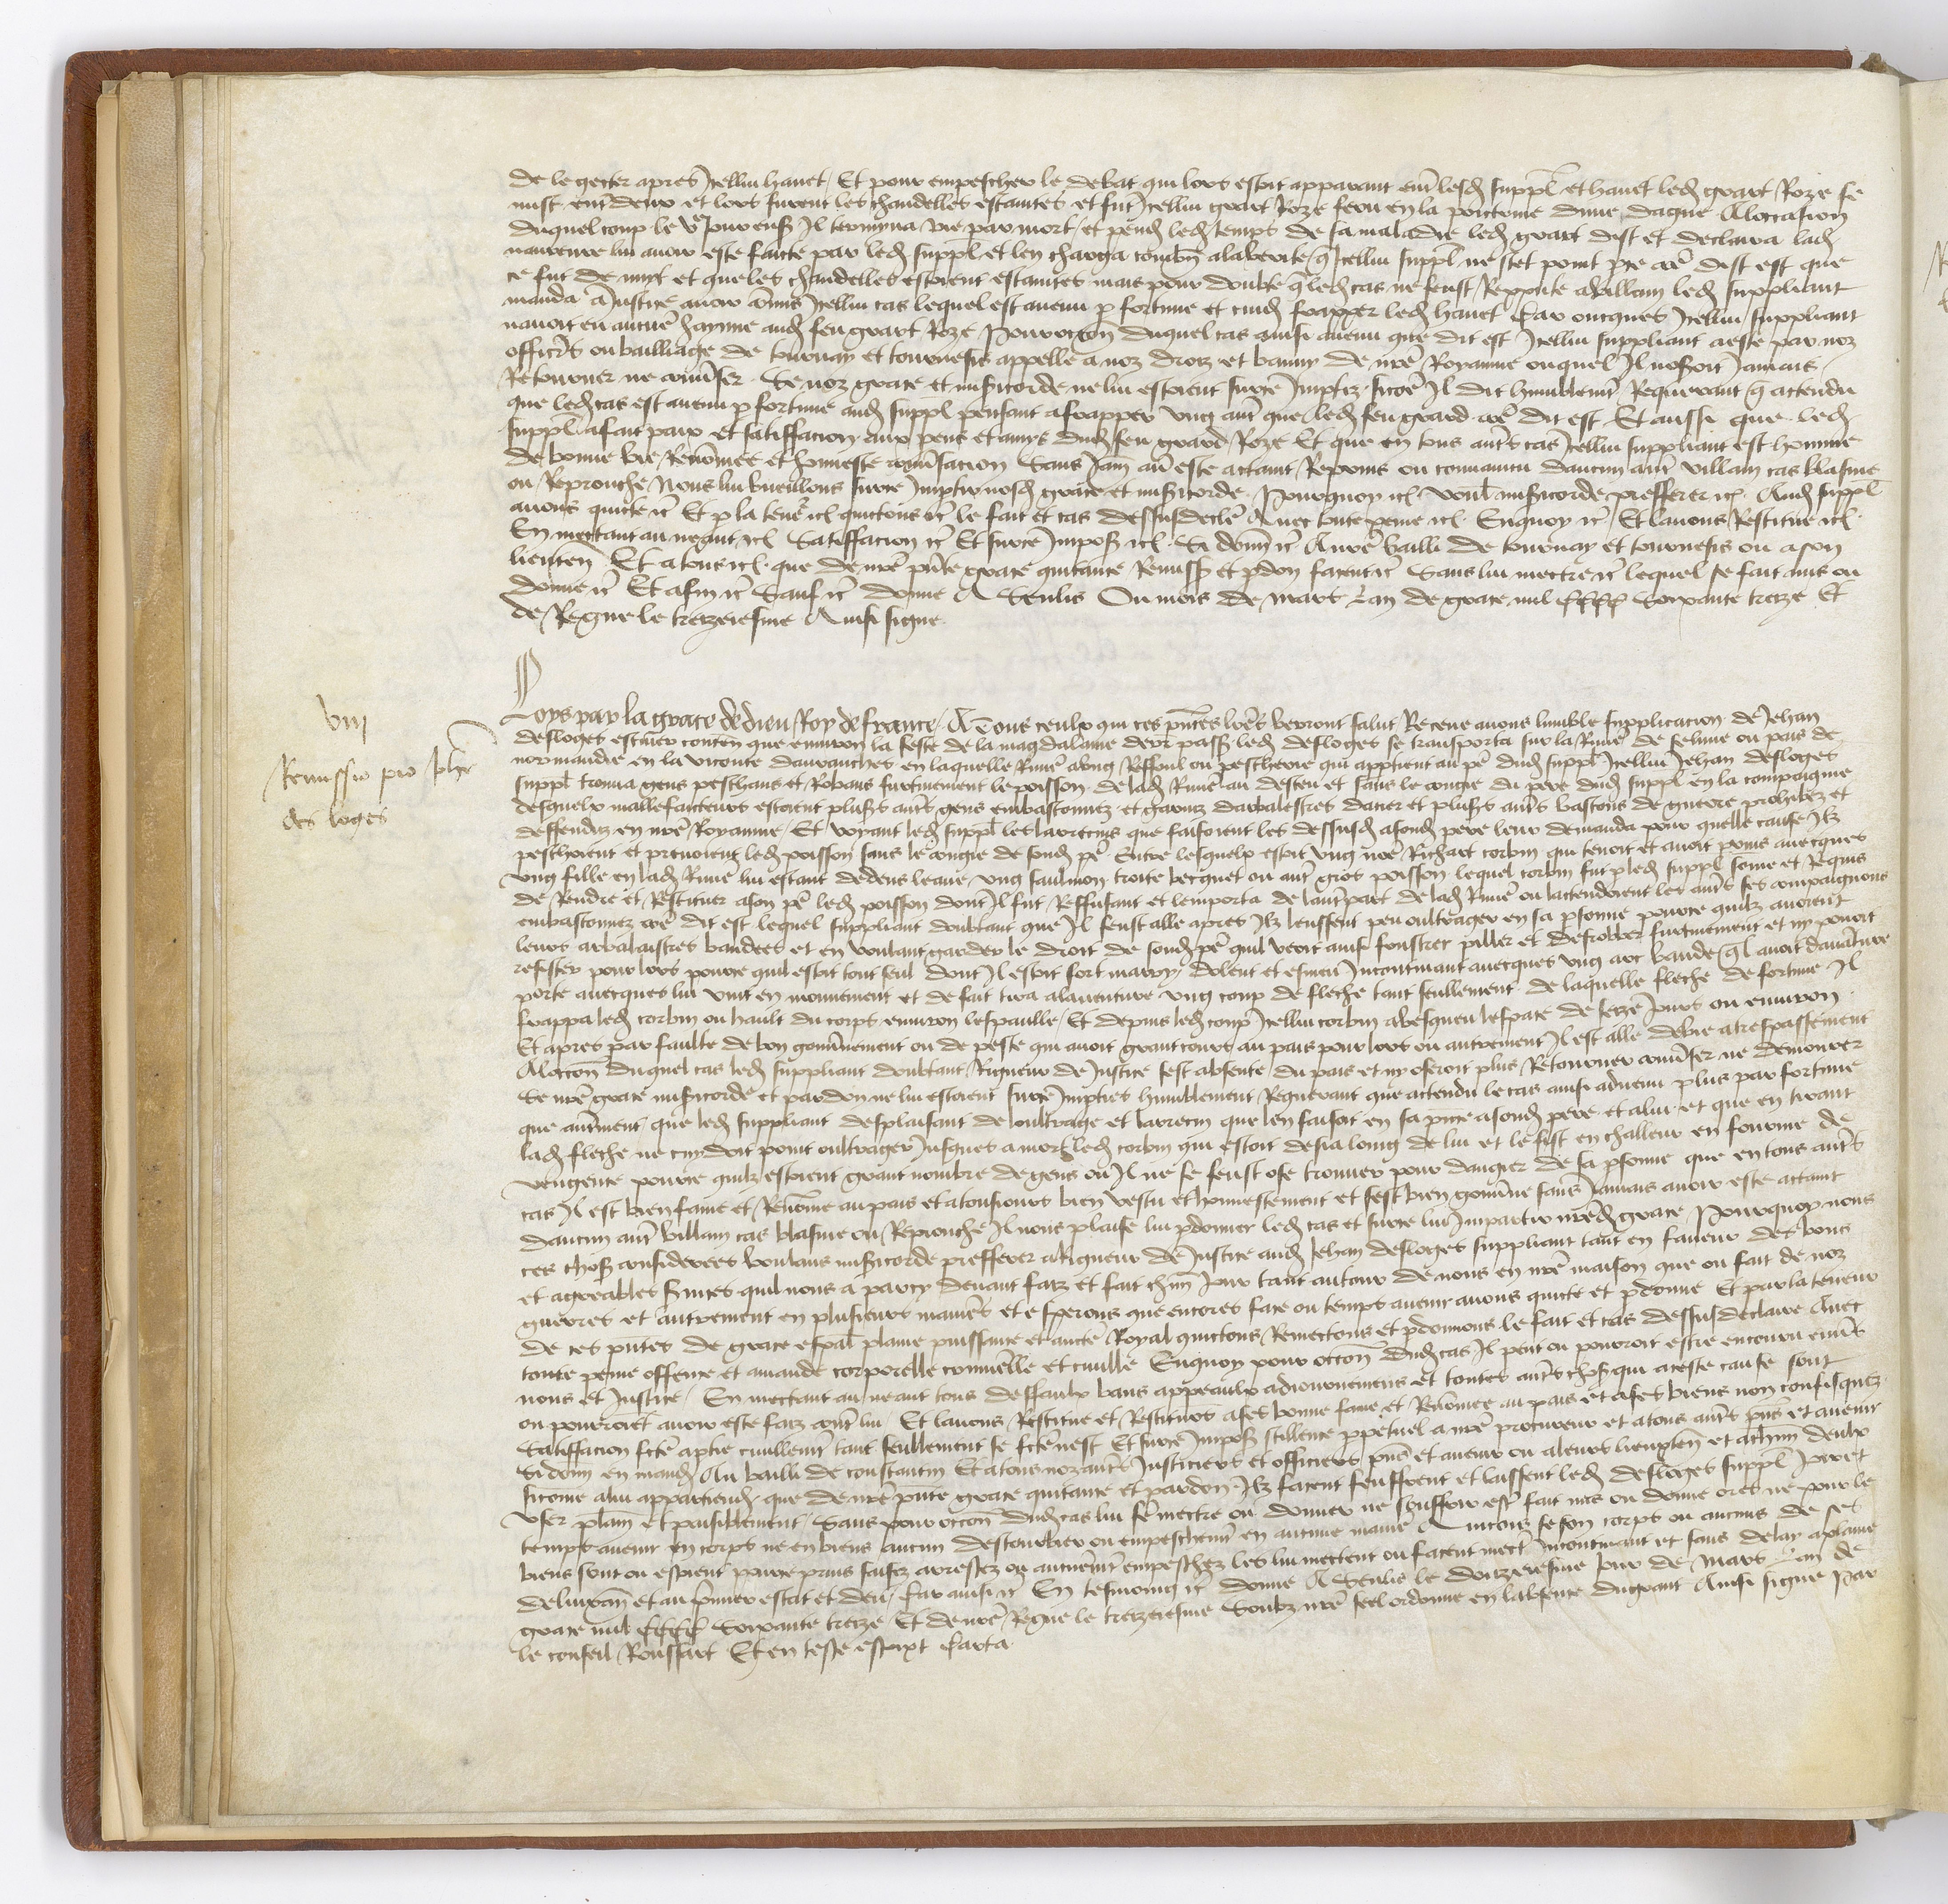 de le gecter apres Icellui hanet / Et pour empescher le debat qui lors estoit apparant ent lesd suppl et hanet led grart Roze se
mist ent deux et lors furent les chandelles estaintes et fut Icellui grart Roze feru en la poictrine dune dague A loccasion
duquel coup le Ve Jour ens Il termyna vie par mort / et pend led temps de sa maladie led grart dist et declaira lad
navreure lui avoir este faicte par led suppl et len charga combn ala verite q Icellui suppl ne stet point pre coe dist est que
ce fut de nuyt et que les chandelles estoient estaintes mais pour doubte q led cas ne feust Reppute a villain led suppliant
manda a Justice avoir comis Icellui cas lequel est avenu p fortune et cuid frapper led hanet Car oncques Icellui suppliant
navoit eu aucune hayne aud feu grart Roze Pour occon duquel cas ainsi avenu que dit est Icellui suppliant a este par noz
officrs ou bailliage de tournay et tournesis appelle a noz droiz et banny de nre Royaume ouquel Il noseroit Jamais
Retourner ne converser Se noz grace et misericorde ne lui estoient sur ce Imptiz sicoe Il dit humblemt Requerant q actendu
que led cas est avenu p fortune aud suppl pensant a frapper ung aut que led feu grard coe dit est Et aussi que led
suppl a fait paix et satiffacion aux pens et amys dud feu grard Roze Et que en tous autrs cas Icellui suppliant est homme
de bonne vie Renomee et honneste conversacion Sans Jam avr este actaint Repvins ou convaincu daucun autr villain cas blasme
ou Reprouche Nous lui vueillons sur ce Imptir nosd grace et misericorde Pourquoy etc voul misericorde prefferer etc Aud suppl
avons quicte etc Et p la tener etc quictons etc le fait et cas dessusdecle Avec toute peine etc Enquoy etc Et lavons Restitue etc
En mectant au neant etc Satiffacion etc Et sur ce Impos etc Si donn etc A nre bailli de tournay et tournesis ou a son
lieuten Et a tous etc que de nre pnte grace quitance Remiss et pdon facent etc Sans lui mectre etc lequel se fait mis ou
donne etc Et afin etc Sauf etc Donne A Senlis Ou mois de mars Lan de grace mil CCCC Soixante treize Et
de Regne le treiziesme Ainsi signe
VIII
Remissio pro Johe
des loges
Loys par la grace de dieu Roy de france A Tous ceulx qui ces pntes lres verront salut Receue avons lumble supplicacion de Jehan
desloges escuier conten que environ la feste de la magdalaine derr pass led desloges se transporta sur la Rivie de selune ou pais de
normandie en la viconte davranches en laquelle Rivie a ung Reffoul ou pescherie qui apptient au pe dud suppl Icellui Jehan desloges
suppl trouva gens peschans et Robans furtivement le poisson de lad Rivie au desceu et sans le congie du pere dud suppl en la compaignie
desquelx malfecteurs estoient plusrs autrs gens embastonnez et garniz darbalestres dacier et plusrs autrs bastons de guerre prohibez et
deffenduz en nre Royaume / Et voyant led suppl les larrecins que faisoient les dessusd a sond pere leur demanda pour quelle cause Ilz
peschoient et prenoient led poisson sans le congie de sond pe Entre lesquelx estoit ung nme Richart corbin qui tenoit et avoit prins avecques
ung fille en lad Rivie lui estant dedens leaue ung saulmon troite becquet ou autr gros poisson lequel corbin fut p led suppl somme et Requis
de Rendre et Restituer a son pe led poisson dont Il fut Reffusant et lemporta de lautrpart de lad Rivie ou lactendoient les autrs ses compaignons
embastonnez coe dit est lequel suppliant doubtant que sil feust alle apres Ilz leussent peu oultrager en sa psonne pource quilz avoient
leurs arbalestres bandees et en voulant garder le droit de sond pe quil veoit ainsi soustrer piller et desrobber furtivement et ny povoit
resister pour lors pource quil estoit tout seul dont Il estoit fort marry dolent et esmeu Incontinant avecques ung arc bande ql avoit davanture
porte avecques lui vint en mouvement et de fait tira alaventure ung coup de fleche tant seullement de laquelle fleche de fortune Il
frappa led corbin ou hault du corps environ lespaulle / Et depuis led coup Icellui corbin a vesquu lespace de seize Jours ou environ
Et apres par faulte de bon gouvnement ou de peste qui avoit grant cours au pais pour lors ou autrement Il est alle de vie a trespassement
A loccon duquel cas led suppliant doubtant Rigueur de Justice sest absente du pais et ny oseroit plus Retourner converser ne demourer
Se nre grace misericorde et pardon ne lui estoient sur ce Impties humblement Requerant que actendu le cas ainsi advenu plus par fortune
que autrment que led suppliant desplaisant de loultrage et larrecin que len faisoit en sa pnce a sond pere et a lui et que en tirant
lad fleche ne cuydoit point oultrager Jusques a mort led corbin qui estoit desia loing de lui et le fist en challeur en fourme de
vengence pource quilz estoient grant nombre de gens ou Il ne se feust ose trouver pour dangier de sa psonne que en tous autrs
cas Il est bien fame et Renome au pais et a tousiours bien vescu et honnestement et sest bien gouvne sans Jamais avoir este actaint
daucun autr villain cas blasme ou Reprouche Il nous plaise lui pdonner led cas et sur ce lui Impartir nred grace Pourquoy nous
ces choses considerees voulans misericorde prefferer a Rigueur de Justice aud Jehan desloges suppliant tant en faveur des bons
et agreables services quil nous a parcy devant faiz et fait chun Jour tant autour de nous en nre maison que ou fait de noz
guerres et autrement en plusieurs manies et esperons que encores face ou temps avenir avons quicte et pdonne Et par la teneur
de ces pntes de grace espal plaine puissance et aucte Royal quictons Remectons et pdonnons le fait et cas dessusdeclaire Avec
toute peine offense et amande corporelle criminelle et civille Enquoy pour occon dud cas Il peut ou pourroit estre encouru envrs
nous et Justice / En mectant au neant tous deffaulx bans appeaulx adiournemens et toutes autrs chos qui a ceste cause sont
ou pourroiet avoir este faiz contr lui / Et lavons Restitue et Restituons a ses bonne fame et Renomee au pais et a ses biens non confisquez
Satiffacion fcte a ptie civillemt tant seullement se fcte nest Et sur ce Impos scillence ppetuel a nre procureur et a tous autrs pns et avenir
Si donn en mand Au bailli de coustantin Et a tous noz autrs Justiciers et officiers pns et avenir ou a leurs lieuxten et a chun deulx
sicomme a lui appartiendr que de nre pnte grace quitance et pardon Ilz facent seuffrent et laissent led desloges suppl Joir et
user plam et paisiblement / Sans pour occon dud cas lui fe mectre ou donner ne souffrir est fait mis ou donne ores ne pour le
temps avenir en corps ne en biens aucun destourbier ou empeschemt en aucune manie Aincois se son corps ou aucuns de ses
biens sont ou estoient pource prins saisiz arrestez ou autremt empeschez les lui mectent ou facent mect Incontinant et sans delay a plaine
delivran et au pmier estat et deu / Car ainsi etc En tesmoing etc Donne A Senlis le douzeiesme Jour de Mars Lan de
grace mil CCCC Soixante treize Et de nre Regne le treiziesme Soubz nre seel ordonne en labsence du grant Ainsi signe Par
le conseil Roussart Et en teste escript Carta